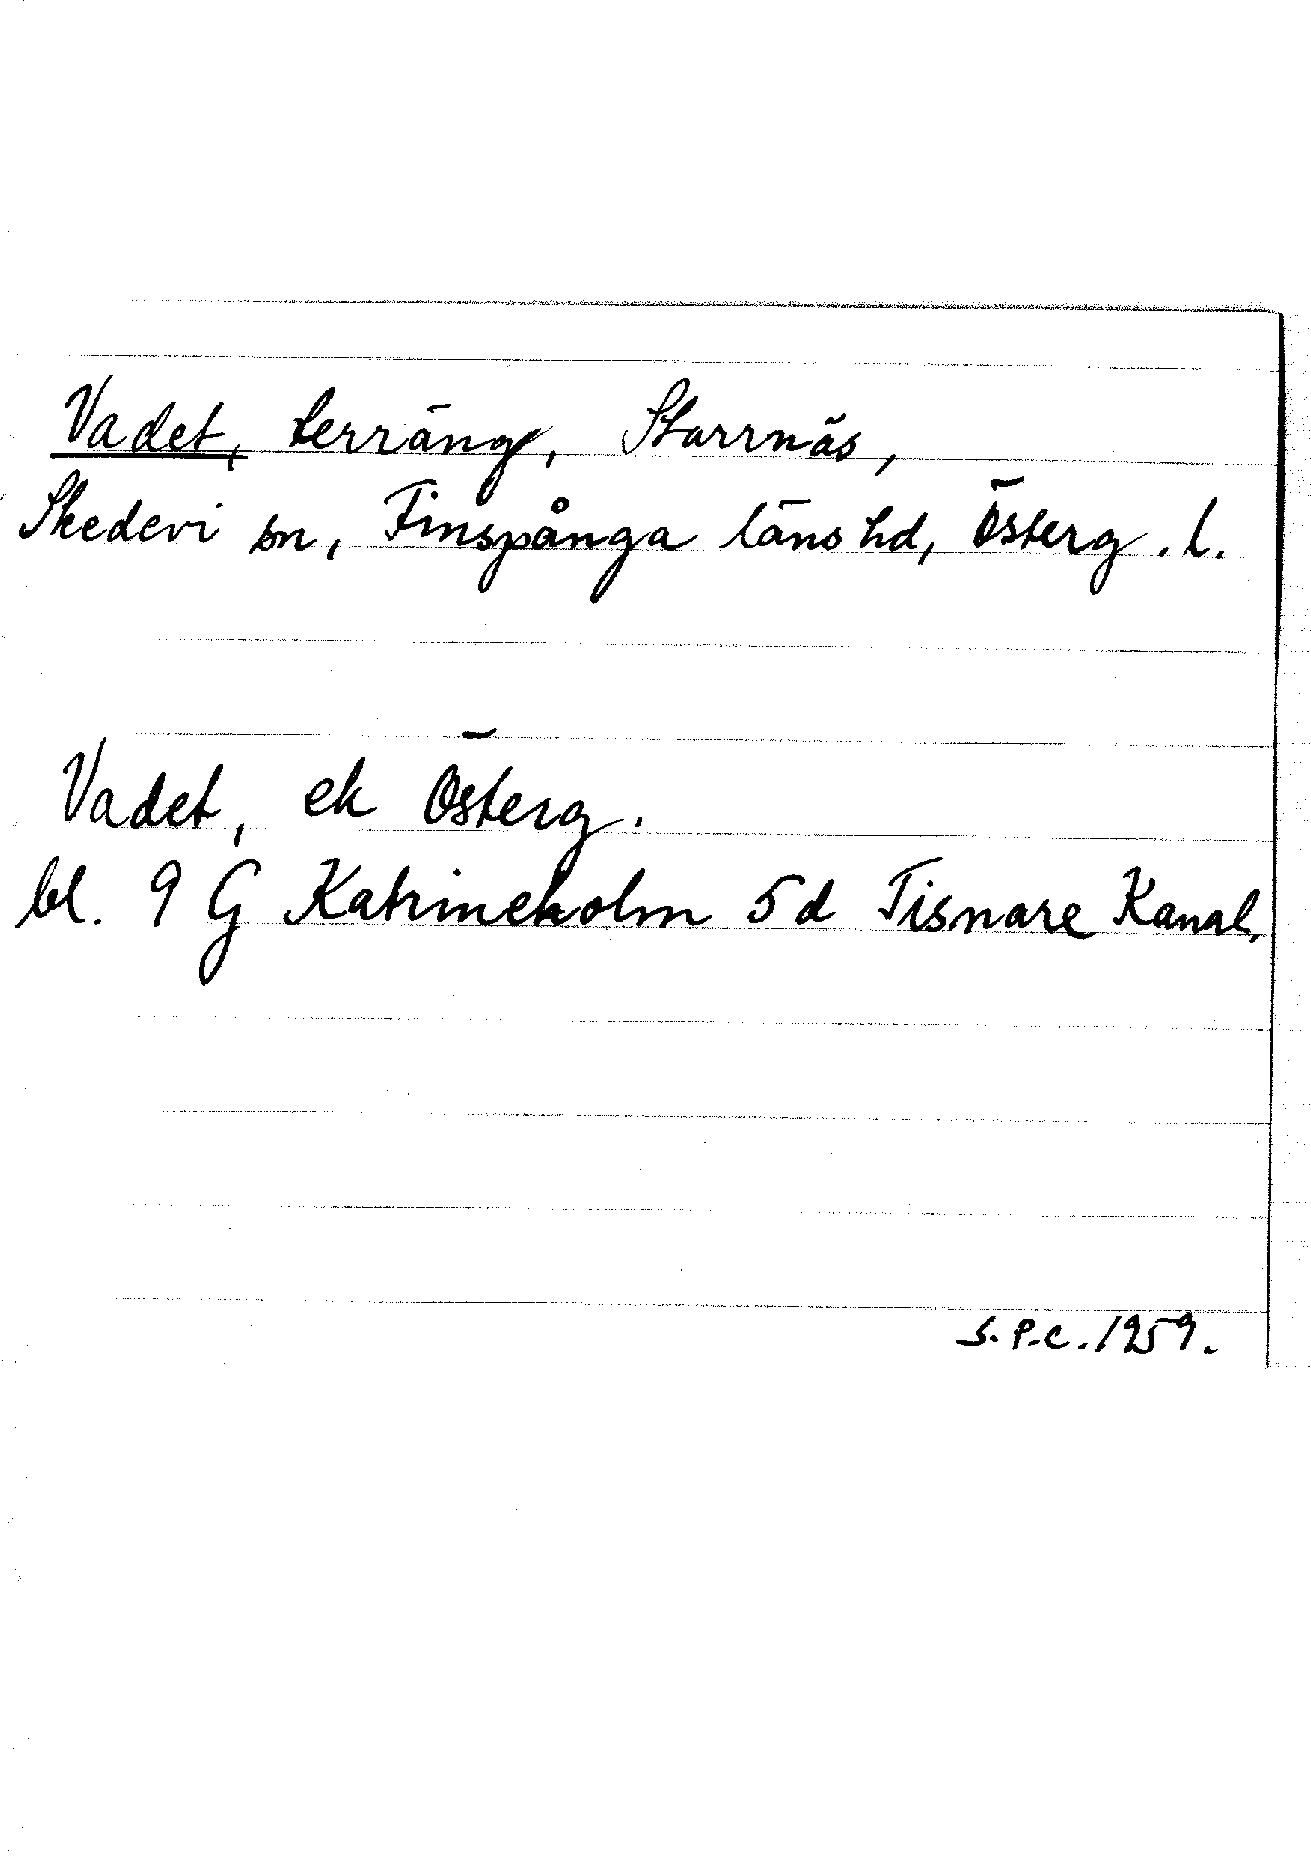 Vadet, terräng, Starrnäs,
Skedevi sn, Finspånga läns hd, Österg. l.
Vadet, ek Österg.
bl. 9 G Katrineholm 5d Tisnare Kanal.
S.P.C. 1959.